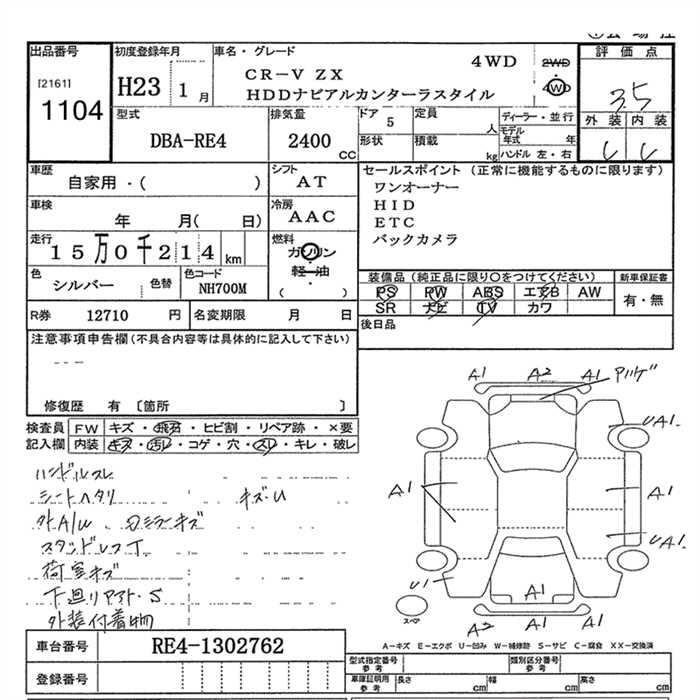 出品番号
[2161]
1104
初度登録年月
H23 1 月
車名・グレード
CR-V ZX
HDDナビアルカンターラスタイル
4WD
2WD
4WD
評価点
3.5
外装 内装
型式
DBA-RE4
排気量
2400 CC
ドア 5
定員 人
形状
積載 kg
ディーラー・並行
モデル年式 年
ハンドル 左・右
車歴
自家用・( )
シフト
AT
セールスポイント (正常に機能するものに限ります)
ワンオーナー
HID
ETC
バックカメラ
車検
年 月( 日)
冷房
AAC
走行
15万0千214 km
燃料
ガソリン
軽油
( )
色
シルバー
色替
色コード
NH700M
装備品 (純正品に限り○をつけてください)
PS PW ABS エアB AW
SR ナビ TV カワ
新車保証書
有・無
R券 12710 円
名変期限 月 日
後日品
注意事項申告欄(不具合内容等は具体的に記入して下さい)
---
修復歴 有 [箇所 ]
検査員記入欄
FW キズ・飛石・ヒビ割・リペア跡・×要
内装 キズ・汚レ・コゲ・穴・スレ・キレ・破レ
ハンドルスレ
シートヘタリ キズ・U
外A/W、ロミラーキズ
スタッドレス
荷室キズ
下廻り S
外装付着物
A1 A2 A1
UA1
A1
A1
UA1
U1
A1
A2 A1
スペア
車台番号 RE4-1302762
登録番号
A-キズ E-エクボ U-凹み W-補修跡 S-サビ C-腐食 XX-交換済
型式指定番号 参考
類別区分番号 参考
車庫証明用 参考
長さ cm
幅 cm
高さ cm